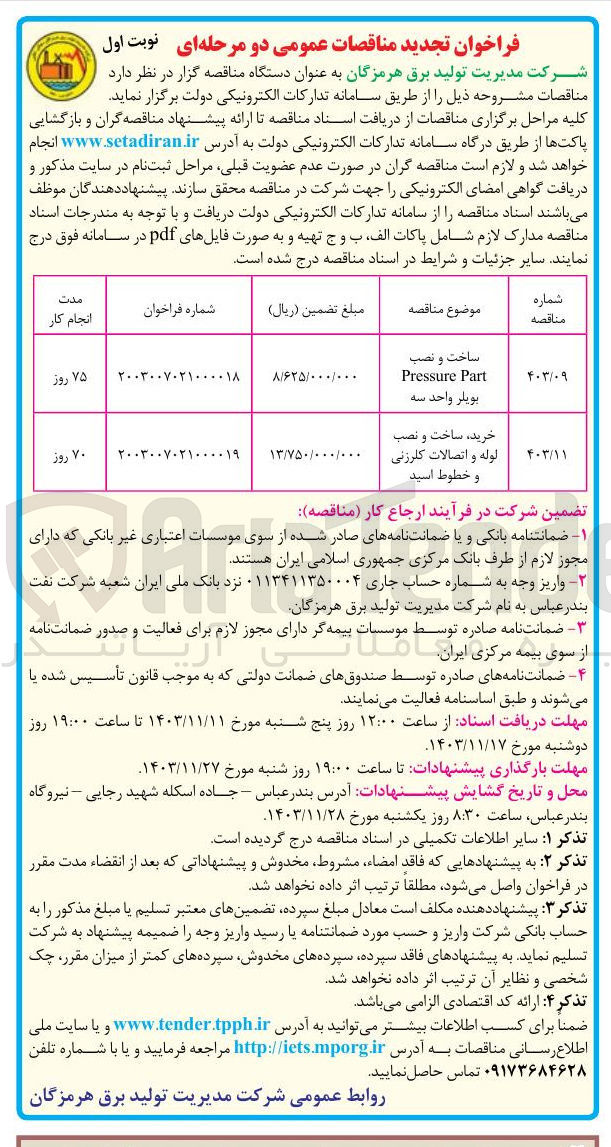 فراخوان تجدید مناقصات عمومی دو مرحله‌ای نوبت اول
شرکت مدیریت تولید برق هرمزگان به عنوان دستگاه مناقصه گزار در نظر دارد
مناقصات مشروحه ذیل را از طریق سامانه تدارکات الکترونیکی دولت برگزار نماید.
کلیه مراحل برگزاری مناقصات از دریافت اسناد مناقصه تا ارائه پیشنهاد مناقصه‌گران و بازگشایی
پاکت‌ها از طریق درگاه سامانه تدارکات الکترونیکی دولت به آدرس www.setadiran.ir انجام
خواهد شد و لازم است مناقصه گران در صورت عدم عضویت قبلی، مراحل ثبت‌نام در سایت مذکور و
دریافت گواهی امضای الکترونیکی را جهت شرکت در مناقصه محقق سازند. پیشنهاددهندگان موظف
می‌باشند اسناد مناقصه را از سامانه تدارکات الکترونیکی دولت دریافت و با توجه به مندرجات اسناد
مناقصه مدارک لازم شامل پاکات الف، ب و ج تهیه و به صورت فایل‌های pdf در سامانه فوق درج
نمایند. سایر جزئیات و شرایط در اسناد مناقصه درج شده است.
شماره مناقصه | موضوع مناقصه | مبلغ تضمین (ریال) | شماره فراخوان | مدت انجام کار
۴۰۳/۰۹ | ساخت و نصب Pressure Part بویلر واحد سه | ۸/۶۲۵/۰۰۰/۰۰۰ | ۲۰۰۳۰۰۷۰۲۱۰۰۰۰۱۸ | ۷۵ روز
۴۰۳/۱۱ | خرید، ساخت و نصب لوله و اتصالات کلرزنی و خطوط اسید | ۱۳/۷۵۰/۰۰۰/۰۰۰ | ۲۰۰۳۰۰۷۰۲۱۰۰۰۰۱۹ | ۷۰ روز
تضمین شرکت در فرآیند ارجاع کار (مناقصه):
۱- ضمانتنامه بانکی و یا ضمانت‌نامه‌های صادر شده از سوی موسسات اعتباری غیر بانکی که دارای
مجوز لازم از طرف بانک مرکزی جمهوری اسلامی ایران هستند.
۲- واریز وجه به شماره حساب جاری ۰۱۱۳۴۱۱۳۵۰۰۰۴ نزد بانک ملی ایران شعبه شرکت نفت
بندرعباس به نام شرکت مدیریت تولید برق هرمزگان.
۳- ضمانت‌نامه صادره توسط موسسات بیمه‌گر دارای مجوز لازم برای فعالیت و صدور ضمانت‌نامه
از سوی بیمه مرکزی ایران.
۴- ضمانت‌نامه‌های صادره توسط صندوق‌های ضمانت دولتی که به موجب قانون تأسیس شده یا
می‌شوند و طبق اساسنامه فعالیت می‌نمایند.
مهلت دریافت اسناد: از ساعت ۱۲:۰۰ روز پنج شنبه مورخ ۱۴۰۳/۱۱/۱۱ تا ساعت ۱۹:۰۰ روز
دوشنبه مورخ ۱۴۰۳/۱۱/۱۷.
مهلت بارگذاری پیشنهادات: تا ساعت ۱۹:۰۰ روز شنبه مورخ ۱۴۰۳/۱۱/۲۷.
محل و تاریخ گشایش پیشنهادات: آدرس بندرعباس – جاده اسکله شهید رجایی – نیروگاه
بندرعباس، ساعت ۸:۳۰ روز یکشنبه مورخ ۱۴۰۳/۱۱/۲۸.
تذکر ۱: سایر اطلاعات تکمیلی در اسناد مناقصه درج گردیده است.
تذکر ۲: به پیشنهادهایی که فاقد امضاء، مشروط، مخدوش و پیشنهاداتی که بعد از انقضاء مدت مقرر
در فراخوان واصل می‌شود، مطلقاً ترتیب اثر داده نخواهد شد.
تذکر ۳: پیشنهاددهنده مکلف است معادل مبلغ سپرده، تضمین‌های معتبر تسلیم یا مبلغ مذکور را به
حساب بانکی شرکت واریز و حسب مورد ضمانتنامه یا رسید واریز وجه را ضمیمه پیشنهاد به شرکت
تسلیم نماید. به پیشنهادهای فاقد سپرده، سپرده‌های مخدوش، سپرده‌های کمتر از میزان مقرر، چک
شخصی و نظایر آن ترتیب اثر داده نخواهد شد.
تذکر ۴: ارائه کد اقتصادی الزامی می‌باشد.
ضمناً برای کسب اطلاعات بیشتر می‌توانید به آدرس www.tender.tpph.ir و یا سایت ملی
اطلاع‌رسانی مناقصات به آدرس http://iets.mporg.ir مراجعه فرمایید و یا با شماره تلفن
۰۹۱۷۳۶۸۴۶۲۸ تماس حاصل‌نمایید.
روابط عمومی شرکت مدیریت تولید برق هرمزگان